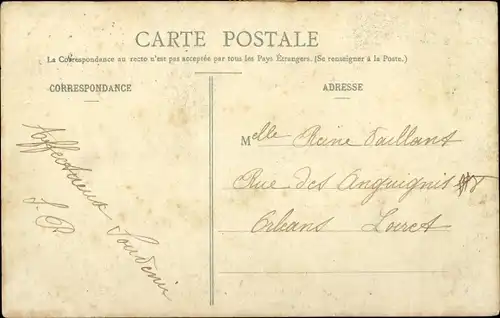 CARTE POSTALE
La Correspondance au recto n'est pas acceptée par tous les Pays Étrangers. (Se renseigner à la Poste.)
CORRESPONDANCE
ADRESSE
Affectueux Souvenir
Melle Reine Vaillant
Rue des Anguignis
Orléans Loiret